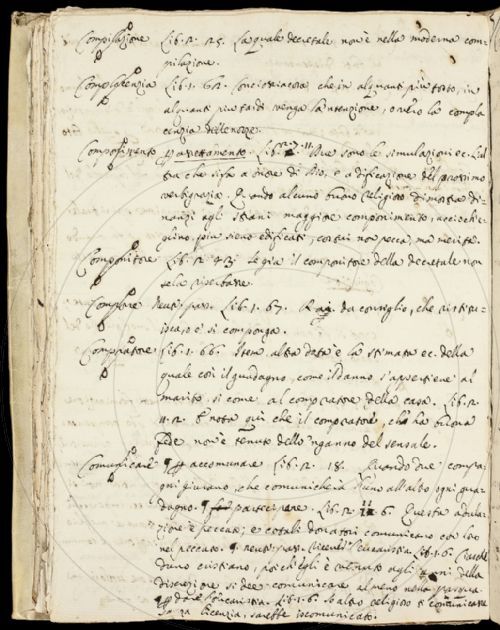 Compilazione Lib. 2. 25. La quale decretale non è nella moderna com-
pilazione.
Compiacenzia Lib. 1. 62. Conciosiacosa che in alquanti più tosto, in
alquanti più tardi venga la'ntenzione, overo la compia
cenzia delle nozze.
Componimento per assettamento. Lib. 2. 7. 11. Due sono le simulazioni ec. L'al
tra che si fa a onore di Dio, e a dificazione del prossimo
verbigrazia. Quando alcuno buono religioso dimostra di-
nanzi agli strani maggiore componimento, acciocch'e-
glino più sieno edificati, costui non pecca, ma merita.
Componitore Lib. 2. 43. Se già il componitore della decretale non
sela riserbasse.
Comporre neut. pass. Lib. 1. 67. da consiglio, che
e si componga.
Compratore Lib. 1. 66. Item altra data è la stimata ec. della
quale così il guadagno, come il danno s'appertiene al
marito, si come al compratore della casa. Lib. 2.
11. 2. E nota quì che il compratore, che ha buona
fede non è tenuto dello 'nganno del sensale.
Comunicare ¶ per accomunare Lib. 2. 18. Quando due compa-
gni giurano, che comunicherà l'uno all'altro ogni gua-
dagno. ¶ per partecipare. Lib. 2. 6. Questa adula-
zione è peccato; e cotali donatori comunicano con loro
nel peccato. ¶ neut. pass. Eucaristia. Lib. 1. 6. Ciasche
duno cristiano, poich'egli è venuto agli anni della
discrezione si dee comunicare al meno nella Pasqua.
¶ per dare l'Eucaristia. Lib. 1. 6. Se altro religioso ti comunicasse
licenzia, sarebbe iscomunicato.